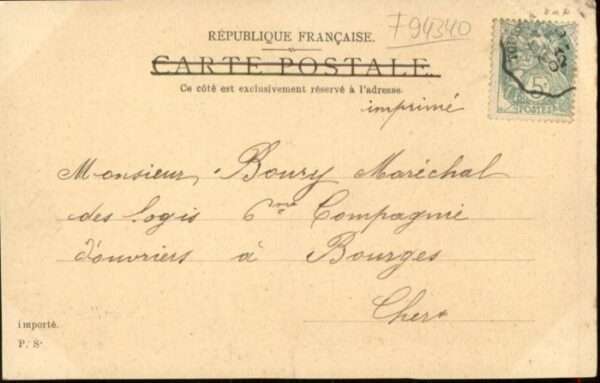 794340
RÉPUBLIQUE FRANÇAISE.
CARTE POSTALE.
Ce côté est exclusivement réservé à l'adresse.
imprimé
5
POSTES
Monsieur Boury Maréchal
des logis 6me Compagnie
d'ouvriers à Bourges
Cher
importé.
P. S.